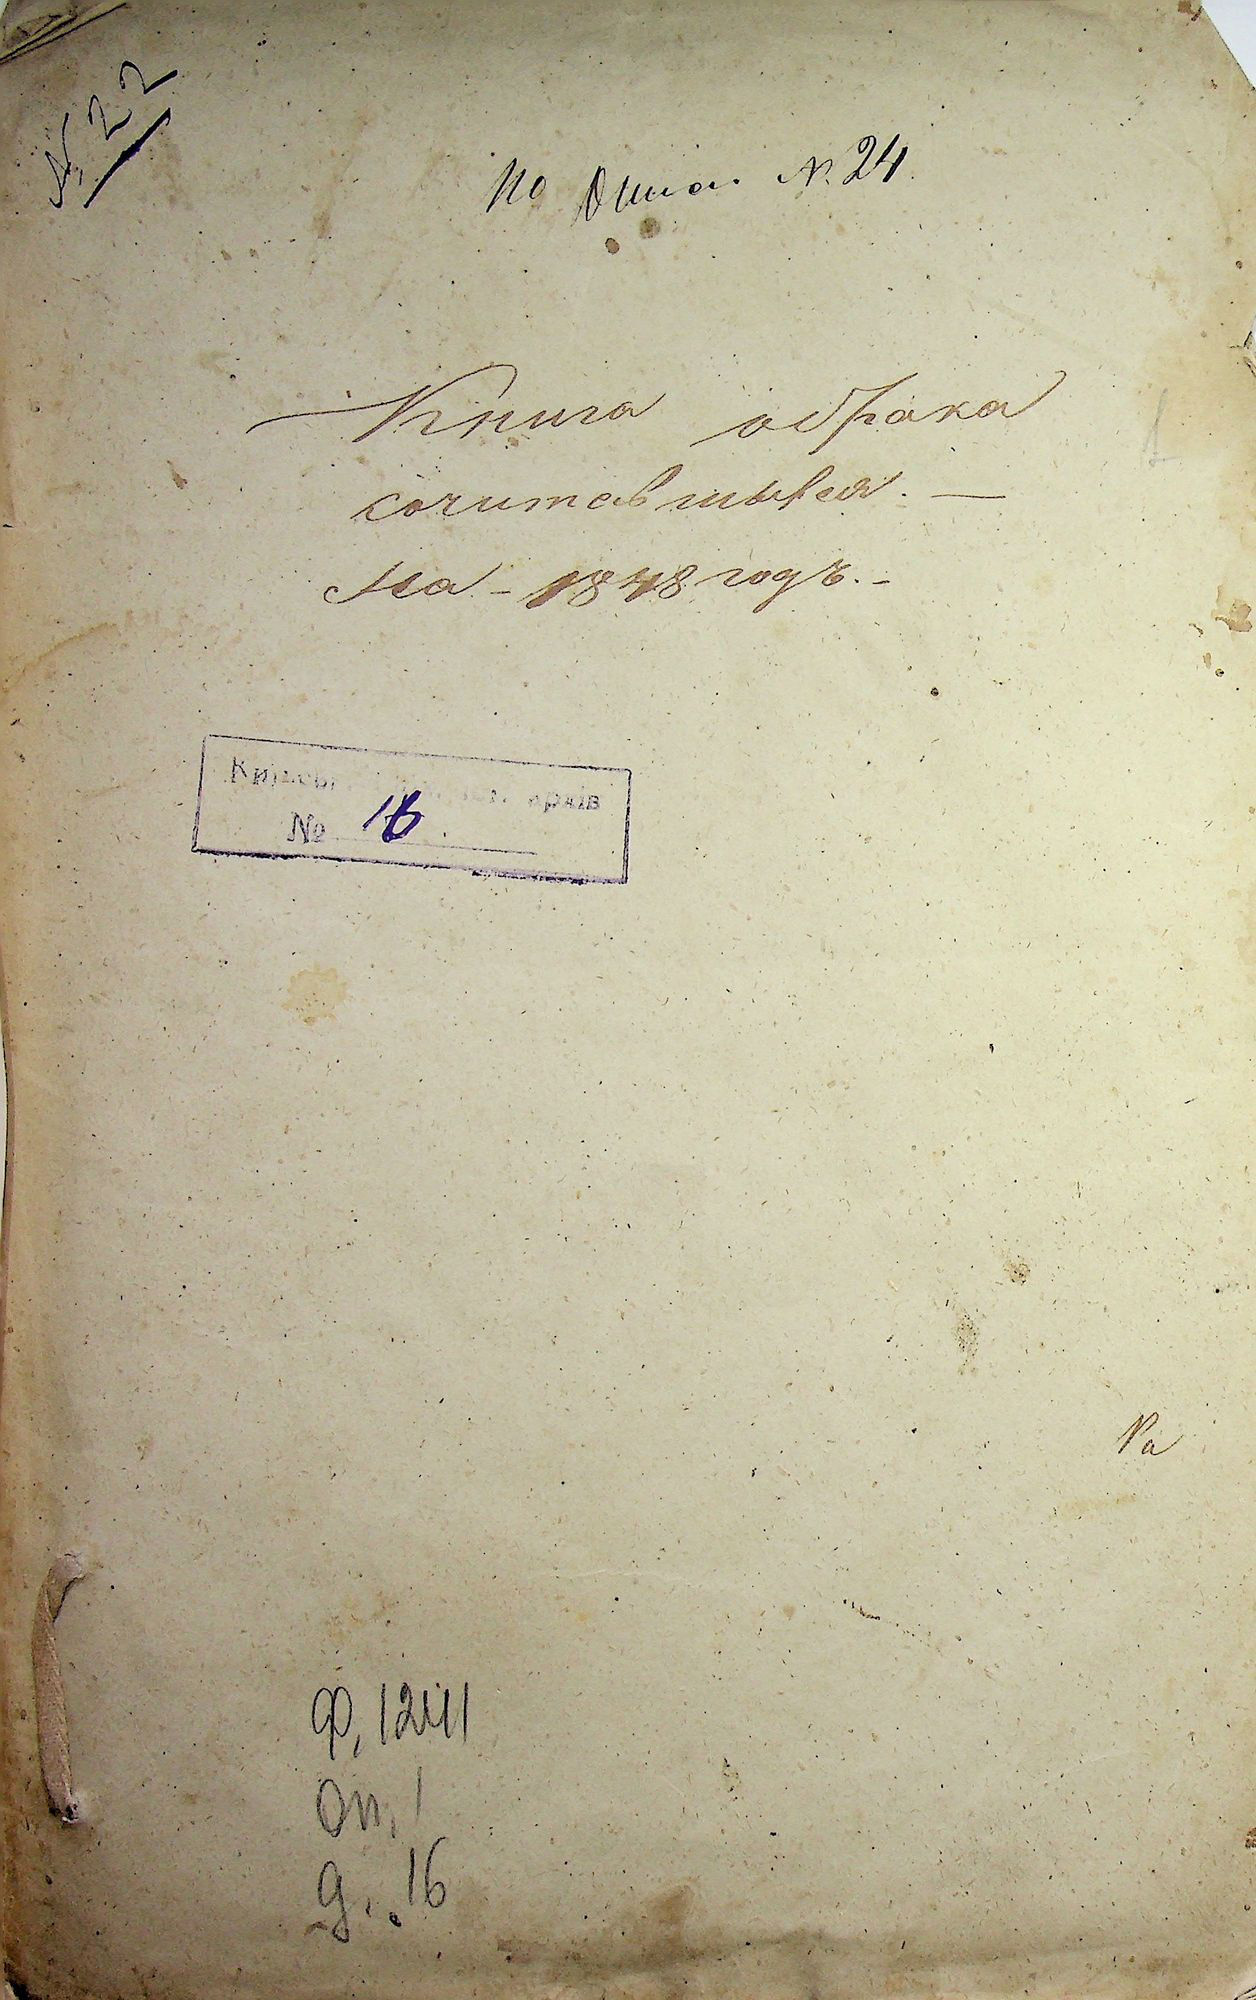 № 22
По Описи №. 24
Книга о брака
сочитавшыхся. —
На - 1848 годъ. -
1
архів
№ 16
Ра
Ф. 1241
Оп. 1
д. 16